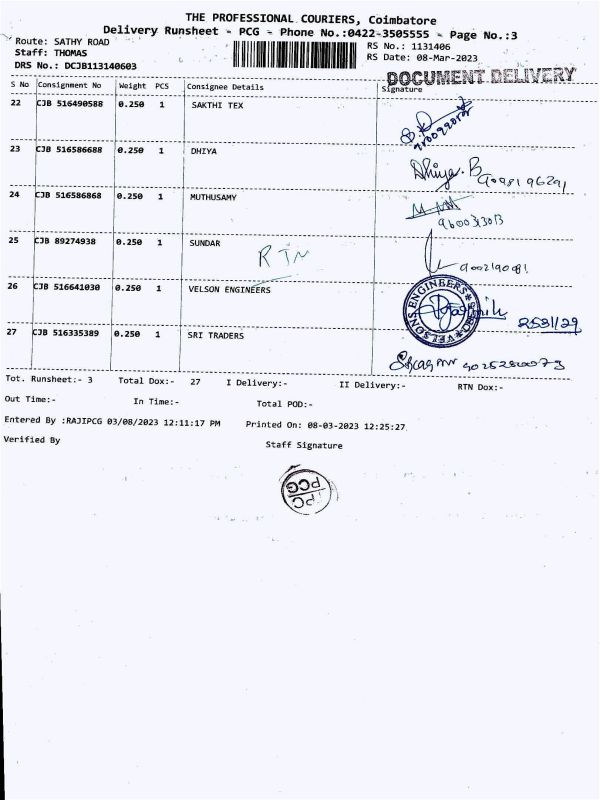 THE PROFESSIONAL COURIERS, Coimbatore
Delivery Runsheet - PCG - Phone No.:0422-3505555 - Page No.:3
Route: SATHY ROAD
Staff: THOMAS
DRS No.: DCJB113140603
RS No.: 1131406
RS Date: 08-Mar-2023
DOCUMENT DELIVERY
S No Consignment No Weight PCS Consignee Details Signature
22 CJB 516490588 0.250 1 SAKTHI TEX
23 CJB 516586688 0.250 1 DHIYA
Dhiya. B
24 CJB 516586868 0.250 1 MUTHUSAMY
25 CJB 89274938 0.250 1 SUNDAR
RTN
9002190081
26 CJB 516641030 0.250 1 VELSON ENGINEERS
VELSONS ENGINEERS
27 CJB 516335389 0.250 1 SRI TRADERS
Tot. Runsheet:- 3 Total Dox:- 27 I Delivery:- II Delivery:- RTN Dox:-
Out Time:- In Time:- Total POD:-
Entered By :RAJIPCG 03/08/2023 12:11:17 PM Printed On: 08-03-2023 12:25:27
Verified By Staff Signature
TPC
PCG